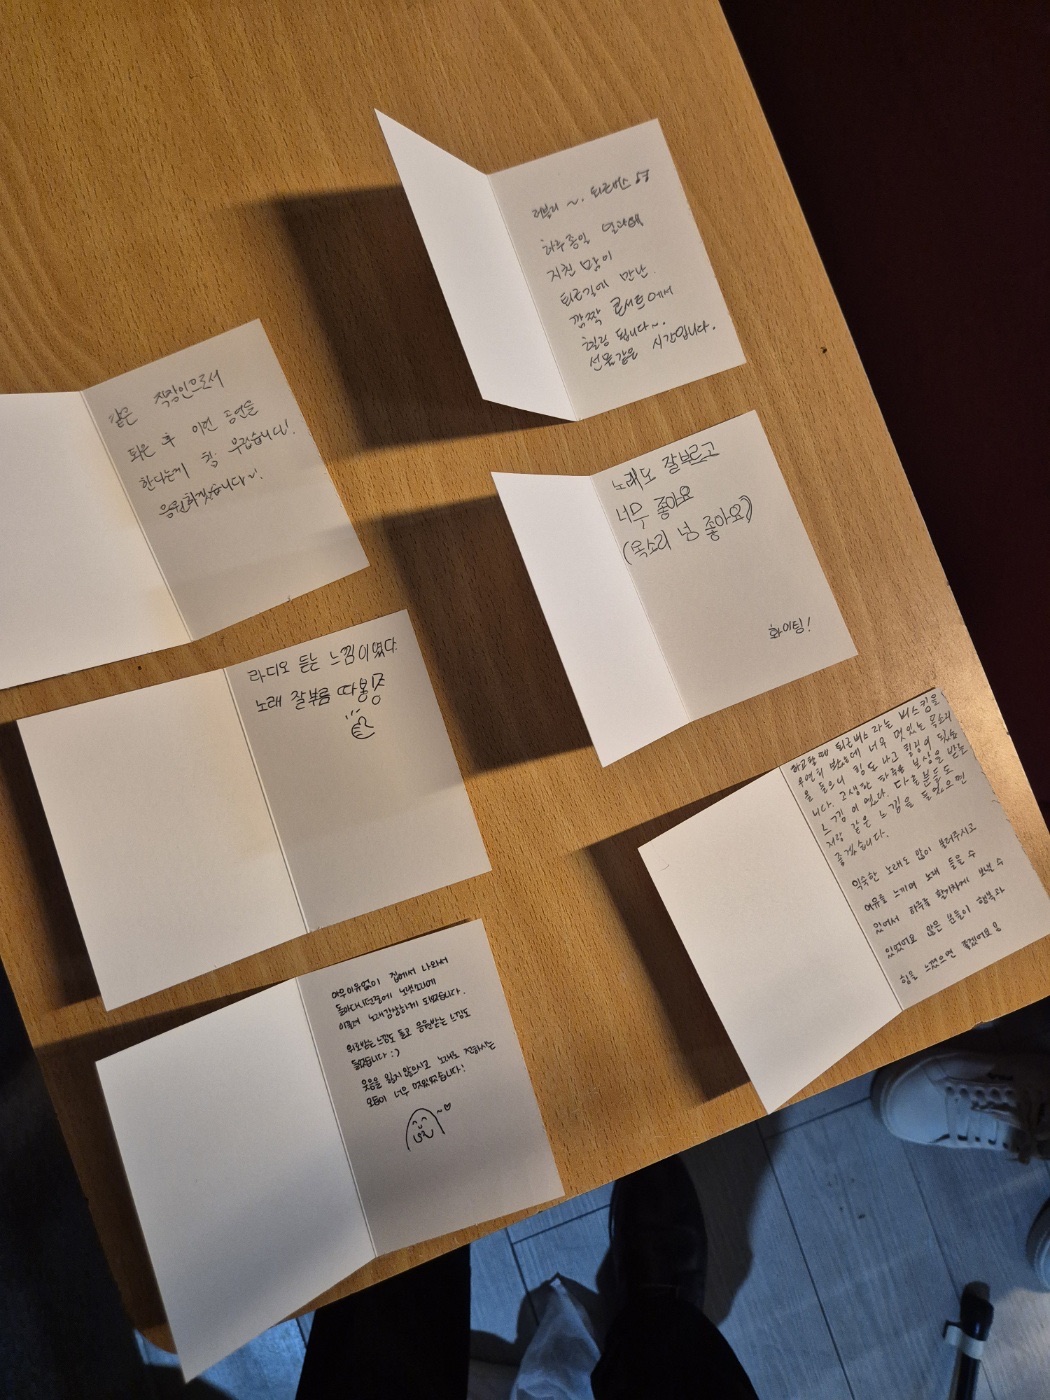 퇴근버스
하루종일 일과에
지친 맘이
퇴근길에 만난
깜짝 콘서트에서
힐링 됩니다~.
선물같은 시간입니다.
같은 직장인으로서
퇴근 후 이런 공연을
한다는게 참 부럽습니다!
응원하겠습니다~!
노래도 잘부르고
너무 좋아요
(목소리 넘 좋아요)
화이팅!
라디오 듣는 느낌이였다.
노래 잘부름 따봉
하교할 때 퇴근버스라는 버스킹을
우연히 봤는데 너무 멋있는 목소리
을 들으니 힘도 나고 힐링이 됐습
니다. 고생한 하루를 보상을 받는
느낌이였다. 다른분들도
저랑 같은 느낌을 들었으면
좋겠습니다.
익숙한 노래도 많이 불러주시고
여유를 느끼며 노래 들을 수
있어서 하루를 활기차게 보낼 수
있었어요 많은 분들이 행복과
힘을 느꼈으면 좋겠어요
아무이유없이 집에서 나와서
돌아다니던중에 노랫소리에
이끌려 노래감상하게 되었습니다.
위로받는 느낌도 들고 응원받는 느낌도
들었습니다 :)
웃음을 잃지 않으시고 노래도 전하시는
모습이 너무 멋있었습니다!